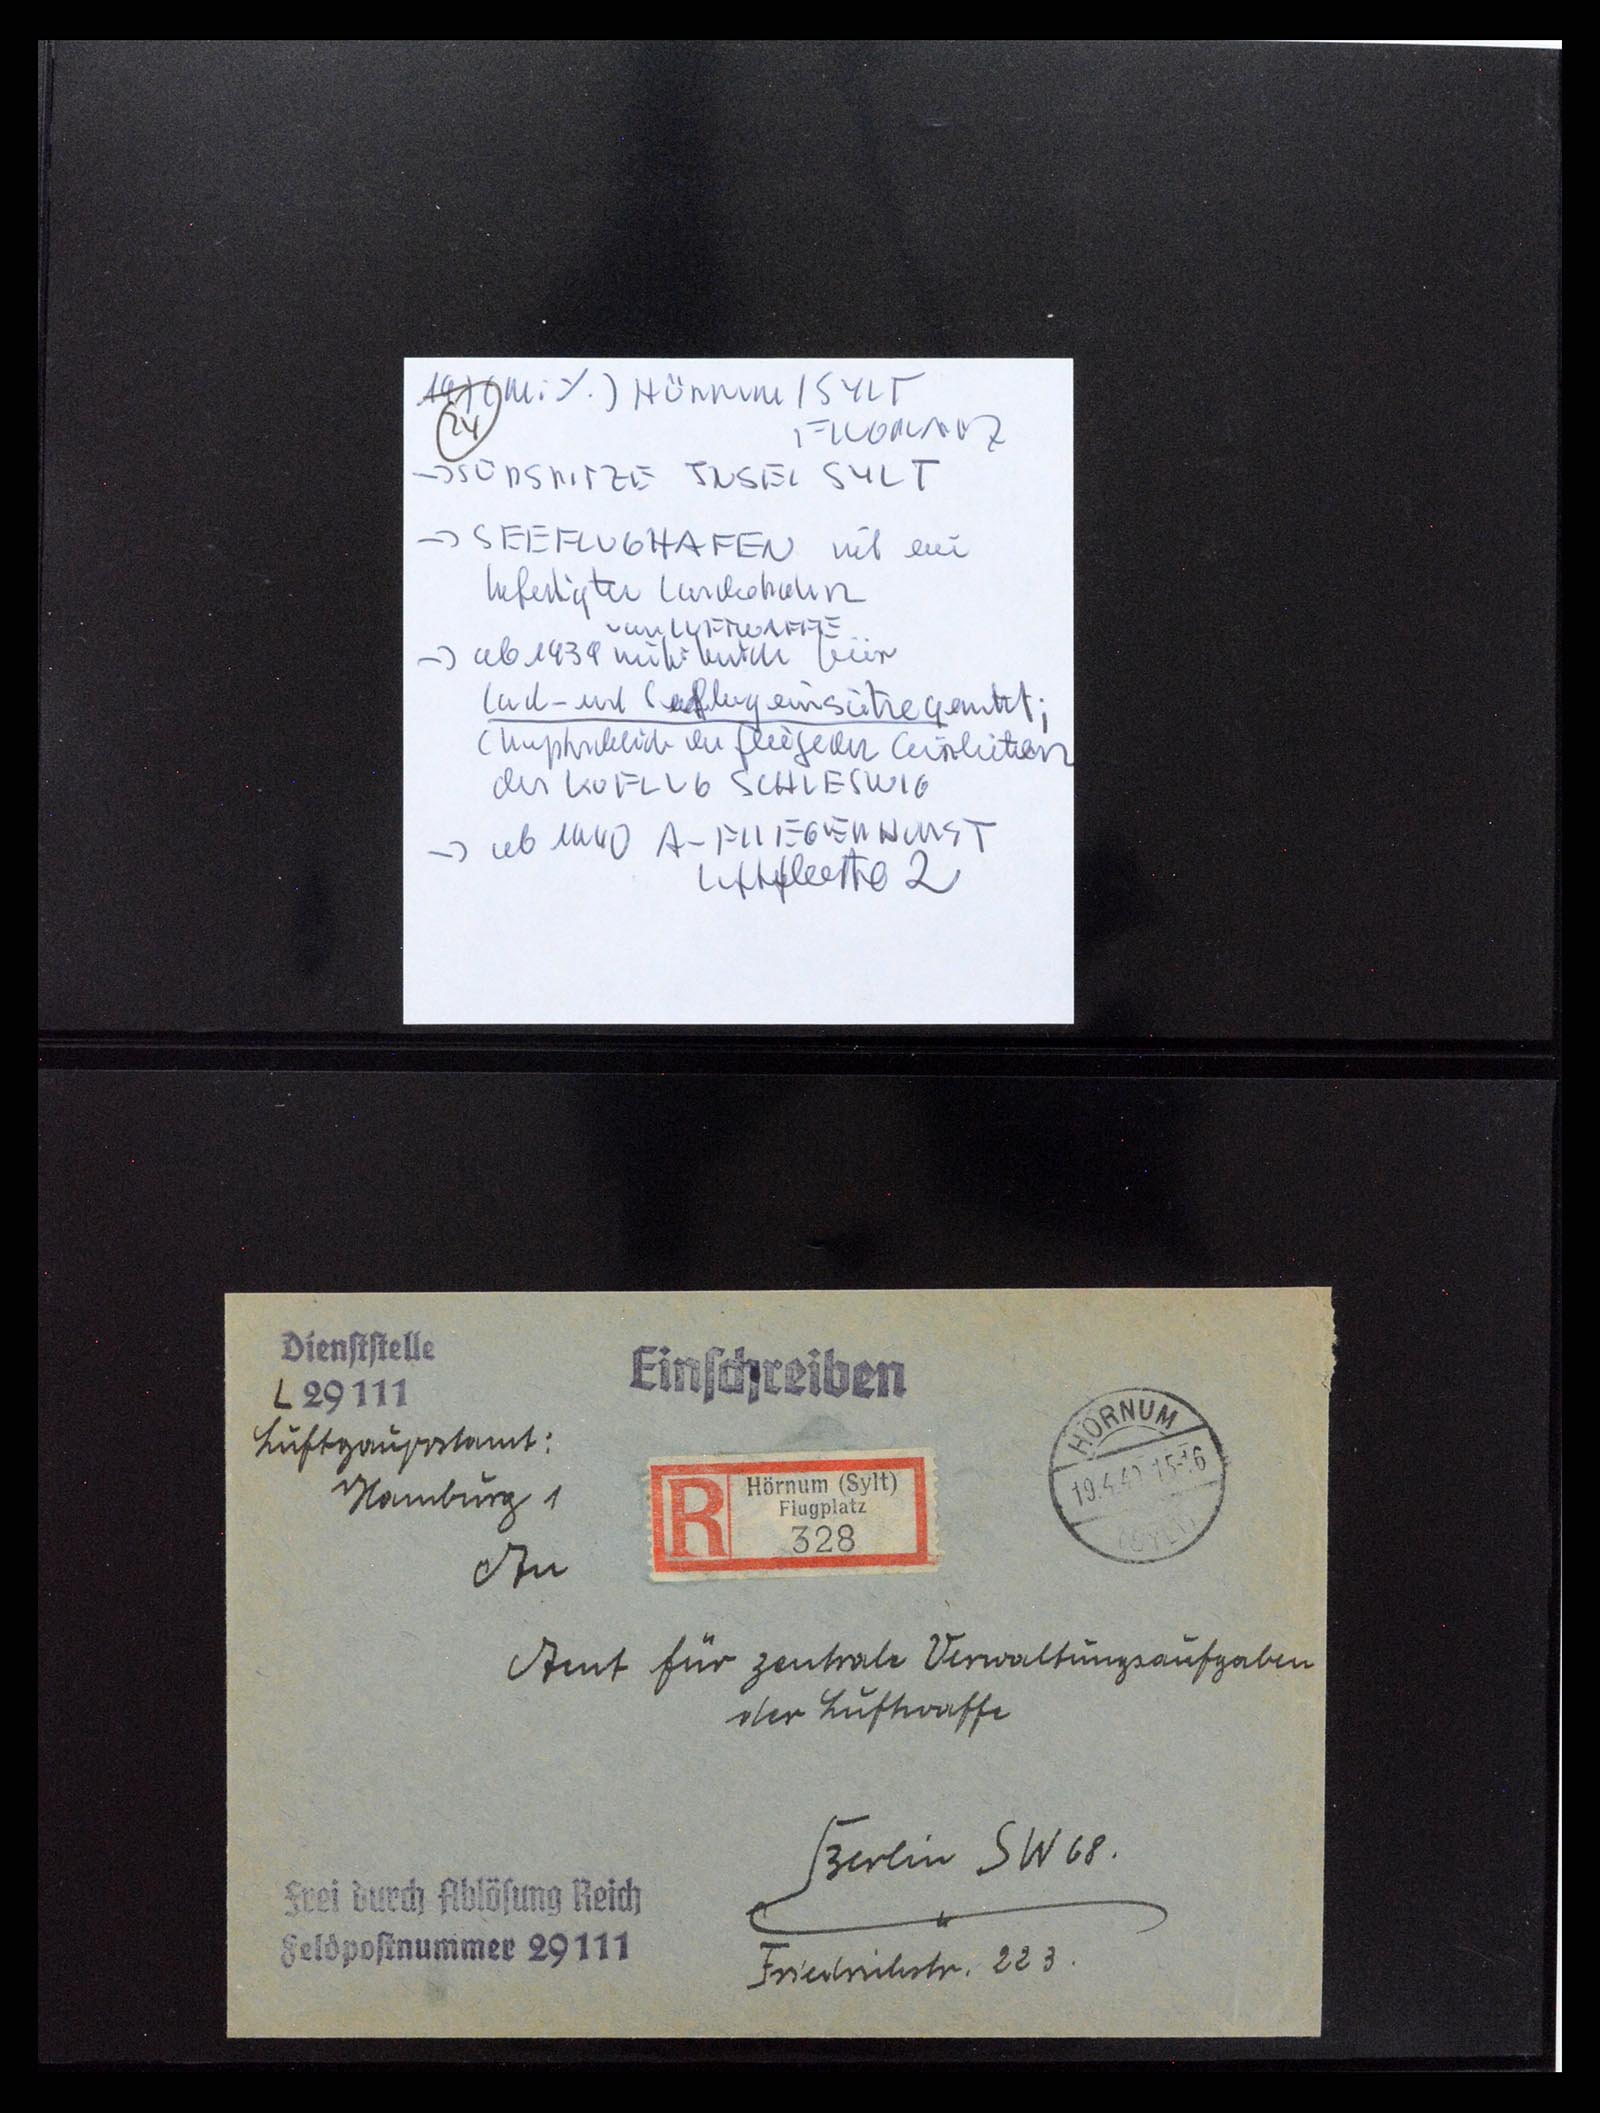 24
Hörnum / SYLT
FLUGPLATZ
→ SÜDSPITZE INSEL SYLT
→ SEEFLUGHAFEN mit
befestigter Landebahn
von LUFTWAFFE
→ ab 1939 für
Land- und Seeflugeinsätze genutzt;
der fliegenden
der KOFLUG SCHLESWIG
→ ab 1940 A-FLIEGERHORST
Luftflotte 2
Dienststelle
L 29 111
Einschreiben
Luftgaupostamt:
Hamburg 1
R
Hörnum (Sylt)
Flugplatz
328
HÖRNUM
19.4.40 15-16
(SYLT)
An
Amt für zentrale Verwaltungsaufgaben
der Luftwaffe
Berlin SW 68.
Frei durch Ablösung Reich
Feldpostnummer 29 111
Friedrichstr. 223.